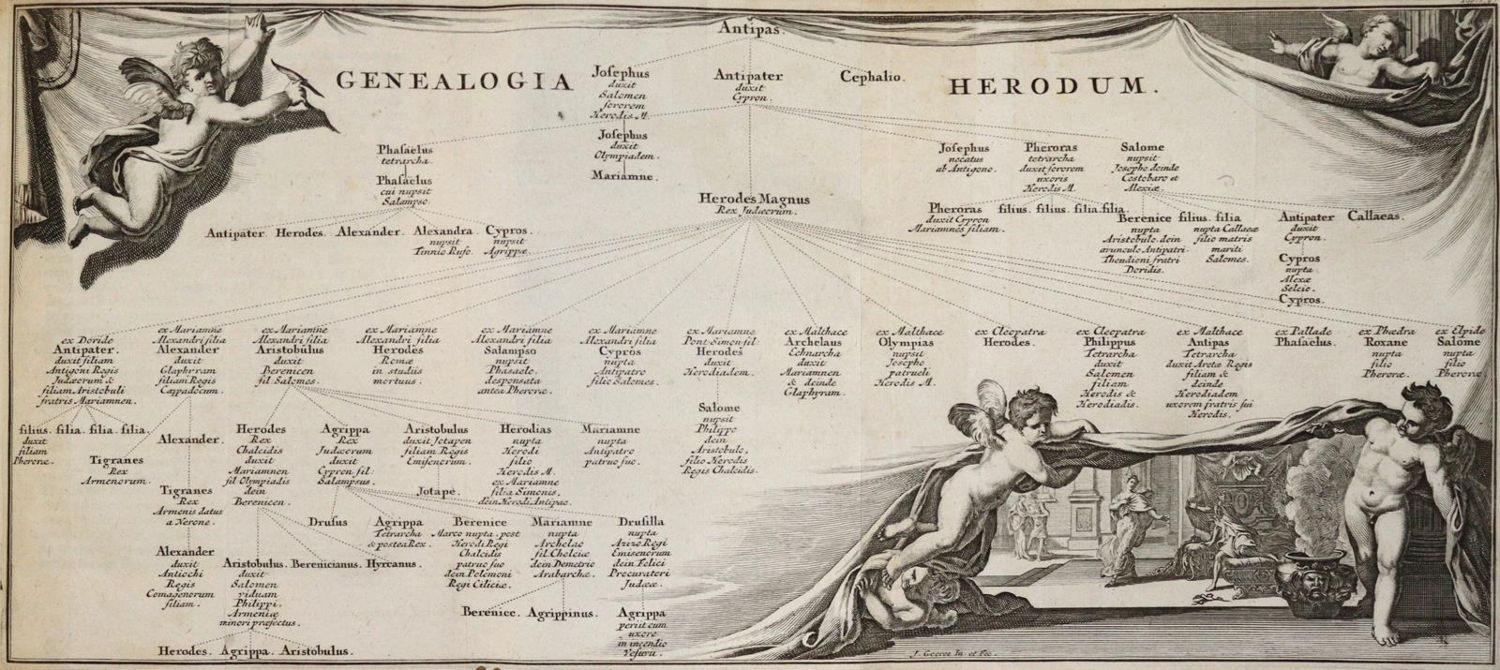 GENEALOGIA HERODUM.
Antipas.
Josephus
duxit
Salomen
sororem
Herodis M.
Antipater
duxit
Cypron.
Cephalio.
Josephus
duxit
Olympiadem.
Mariamne.
Phasaelus
tetrarcha.
Phasaelus
cui nupsit
Salampso.
Antipater. Herodes. Alexander. Alexandra. Cypros.
nupsit
Tinnio Rufo.
nupsit
Agrippæ.
Herodes Magnus
Rex Judæorum.
Josephus
necatus
ab Antigono.
Pheroras
tetrarcha
duxit sororem
uxoris
Herodis M.
Salome
nupsit
Josepho deinde
Costobaro et
Alexiæ.
Pheroras
duxit Cypron
Mariamnes filiam.
filius. filius. filia. filia.
Berenice
nupta
Aristobulo. dein
avunculo Antipatri.
Theudioni fratri
Doridis.
filius. filia
nupta Callaeæ
filio matris
mariti
Salomes.
Antipater
duxit
Cypron.
Cypros
nupta
Alexæ
Selcio.
Cypros.
Callaeas.
ex Doride
Antipater.
duxit filiam
Antigoni Regis
Judæorum &
filiam Aristobuli
fratris Mariamnen.
ex Mariamne
Alexandri filia
Alexander
duxit
Glaphyram
filiam Regis
Cappadocum.
ex Mariamne
Alexandri filia
Aristobulus
duxit
Berenicen
fil Salomes.
ex Mariamne
Alexandri filia
Herodes
Romæ
in studiis
mortuus.
ex Mariamne
Alexandri filia
Salampso
nupsit
Phasaelo.
desponsata
antea Pheroræ.
ex Mariamne
Alexandri filia
Cypros
nupta
Antipatro
filio Salomes.
ex Mariamne
Pont. Simon fil.
Herodes
duxit
Herodiadem.
ex Malthace
Archelaus
Ethnarcha
duxit
Mariamnen
& deinde
Glaphyram.
ex Malthace
Olympias
nupsit
Josepho
patrueli
Herodis M.
ex Cleopatra
Herodes.
ex Cleopatra
Philippus
Tetrarcha
duxit
Salomen
filiam
Herodis &
Herodiadis.
ex Malthace
Antipas
Tetrarcha
duxit Aretæ Regis
filiam &
deinde
Herodiadem
uxorem fratris sui
Herodis.
ex Pallade
Phasaelus.
ex Phædra
Roxane
nupta
filio
Pheroræ.
ex Elpide
Salome
nupta
filio
Pheroræ.
filius. filia. filia. filia.
duxit
filiam
Pheroræ.
Tigranes
Rex
Armenorum.
Alexander.
Tigranes
Rex
Armenis datus
a Nerone.
Alexander
duxit
Antiochi
Regis
Comagenorum
filiam.
Herodes
Rex
Chalcidis
duxit
Mariamnen
fil Olympiadis
dein
Berenicen.
Agrippa
Rex
Judæorum
duxit
Cypron fil.
Salampsus.
Aristobulus
duxit Jotapen
filiam Regis
Emisenorum.
Jotape.
Herodias
nupta
Herodi
filio
Herodis M.
ex Mariamne
filia Simonis,
dein Herodi Antipæ.
Mariamne
nupta
Antipatro
patruo suo.
Salome
nupsit
Philippo
dein
Aristobulo,
filio Herodis
Regis Chalcidis.
Drusus
Agrippa
Tetrarcha
& postea Rex.
Berenice
Marco nupta. post
Herodi Regi
Chalcidis
patruo suo
dein Polemoni
Regi Ciliciæ.
Mariamne
nupta
Archelao
fil. Chelciæ
dein Demetrio
Arabarchæ.
Drusilla
nupta
Azizo Regi
Emisenorum
dein Felici
Procuratori
Judææ.
Aristobulus. Berenicianus. Hyrcanus.
duxit
Salomen
viduam
Philippi.
Armeniæ
minori præfectus.
Berenice. Agrippinus.
Agrippa
periit cum
uxore
in incendio
Vesuvii.
Herodes. Agrippa. Aristobulus.
J. Goeree In. et Fec.